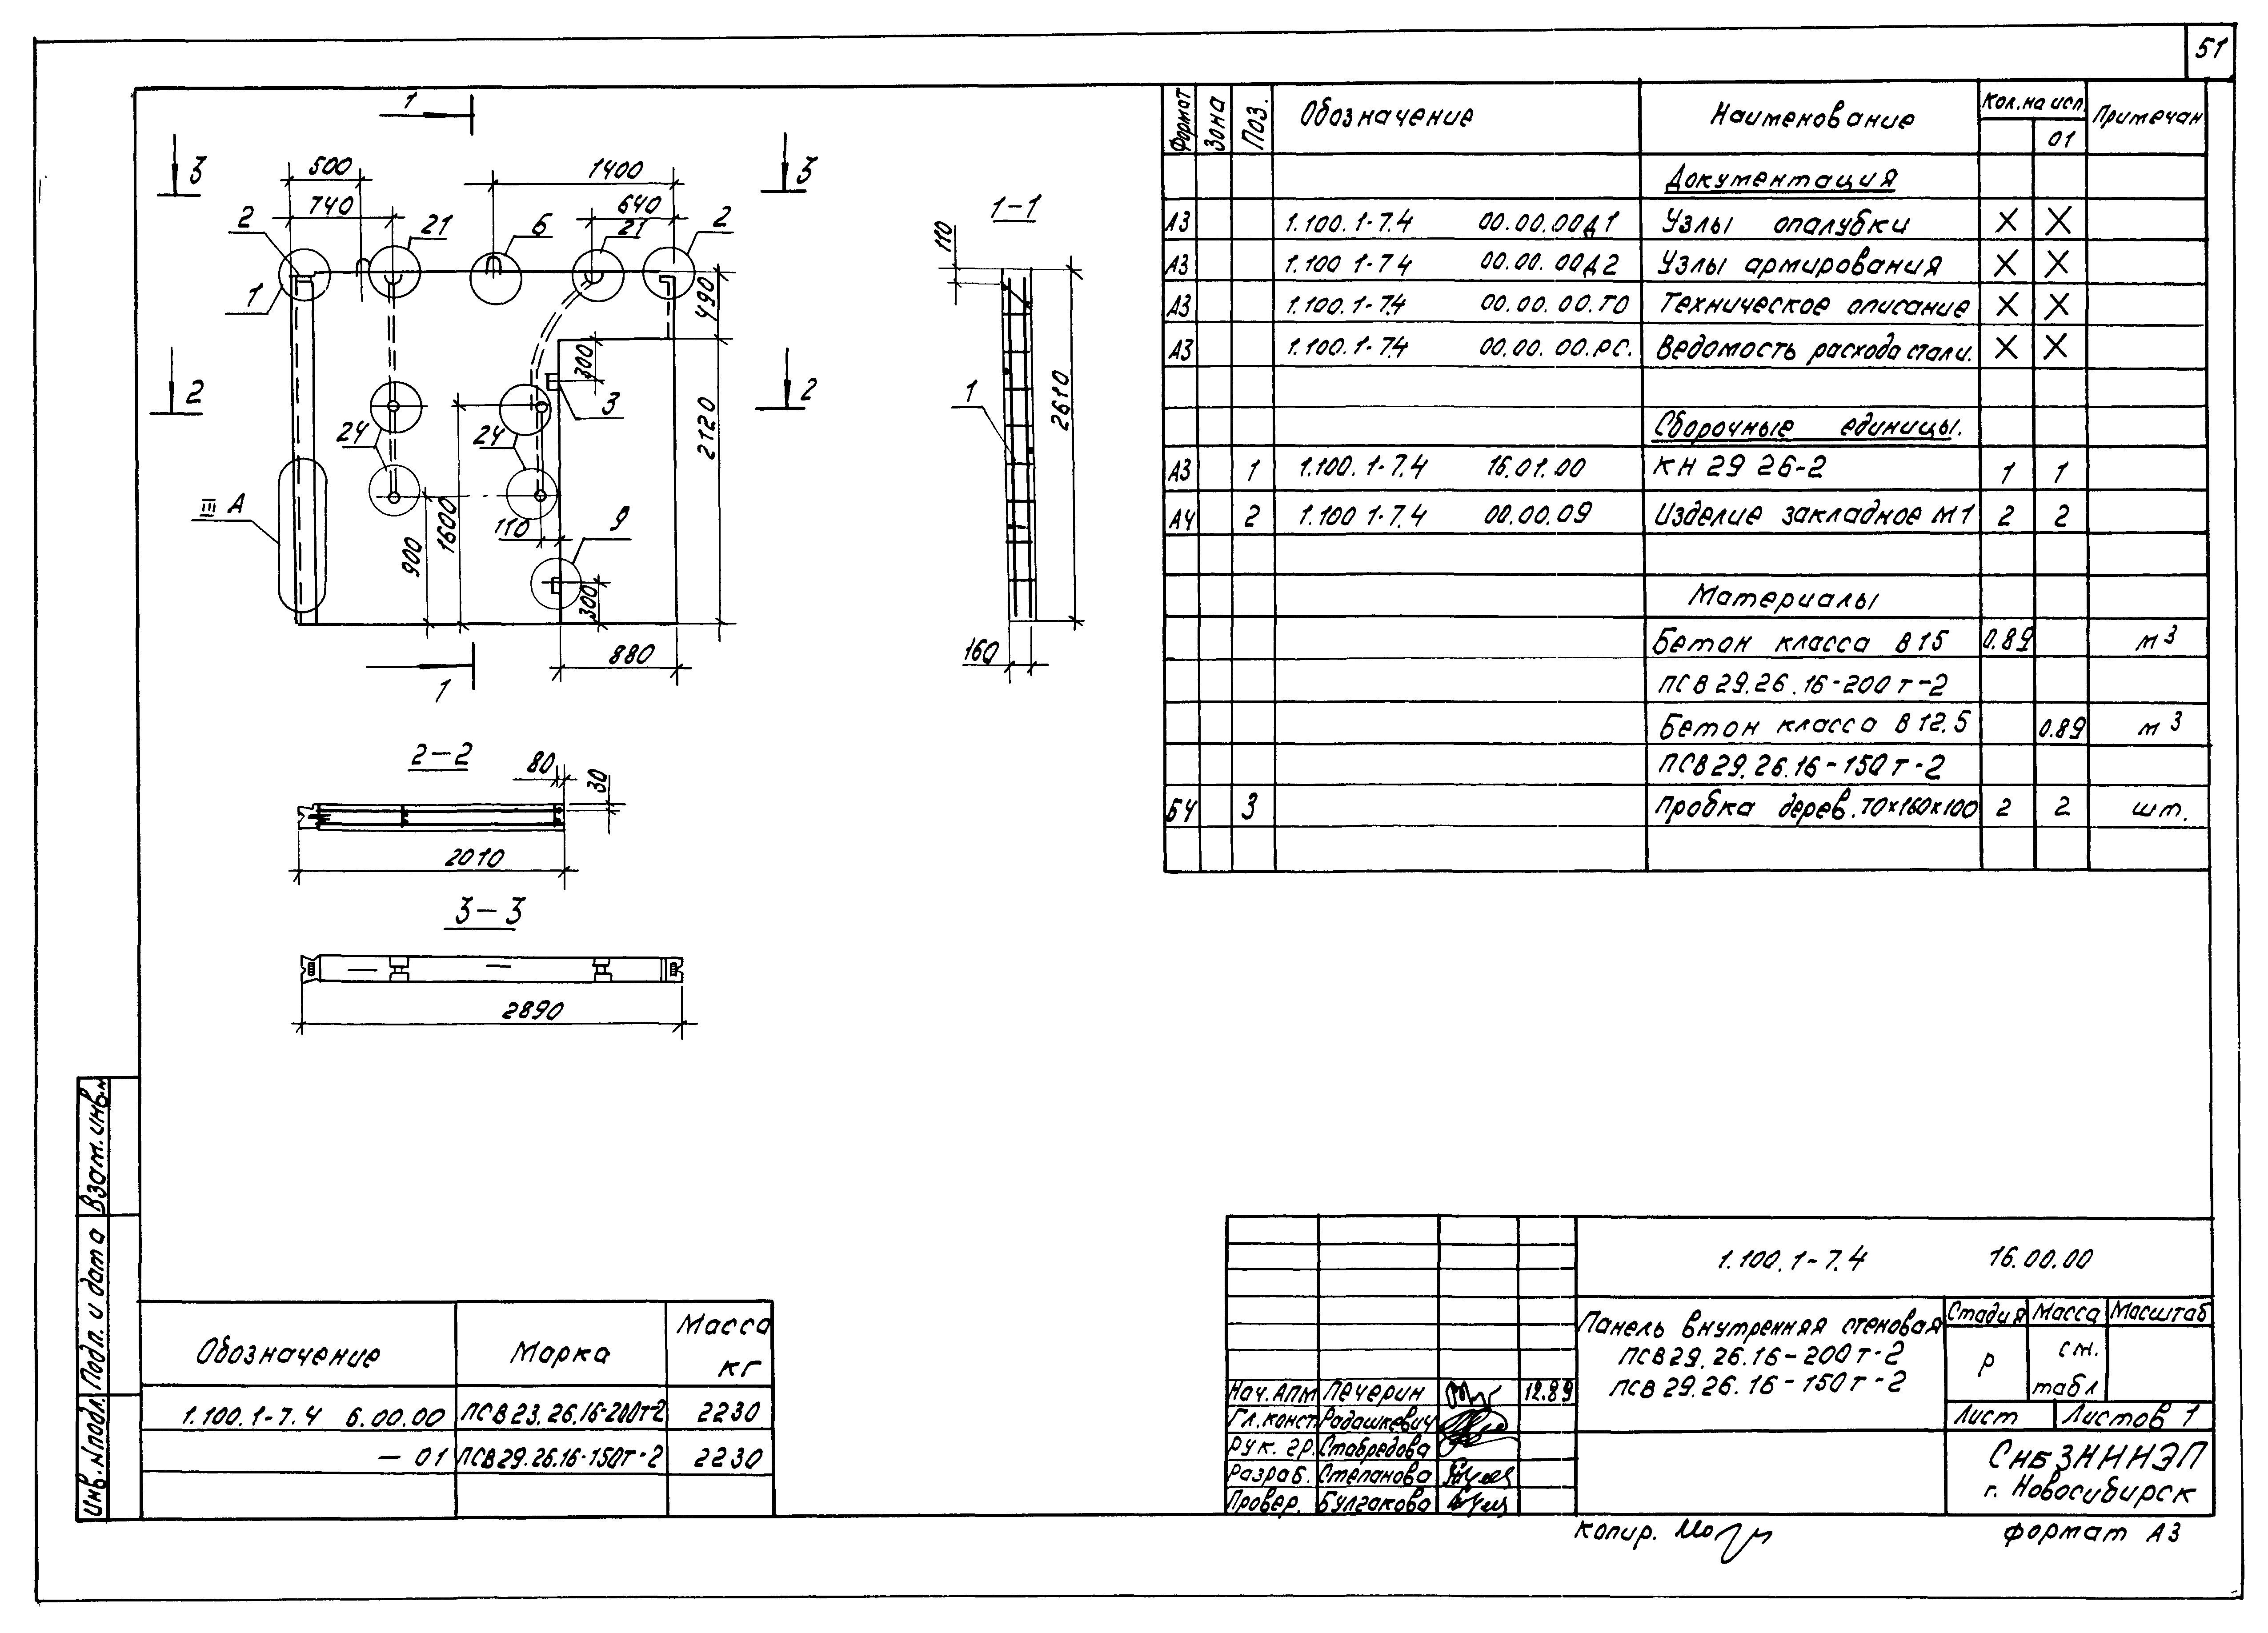 51
1
3
3
500
1400
740
640
2
21
6
21
2
1
490
300
2
2
3
24
24
2120
III А
1600
110
9
900
300
880
1
1-1
110
1
2610
160
2-2
80
30
2010
3-3
2890
Формат Зона Поз. Обозначение Наименование Кол. на исп. Примечан
01
Документация
А3 1.100.1-7.4 00.00.00Д1 Узлы опалубки X X
А3 1.100 1-7 4 00.00.00Д2 Узлы армирования X X
А3 1.100.1-7.4 00.00.00.ТО Техническое описание X X
А3 1.100.1-7.4 00.00.00.РС. Ведомость расхода стали. X X
Сборочные единицы.
А3 1 1.100.1-7.4 16.01.00 КН 29 26-2 1 1
А4 2 1.100 1-7.4 00.00.09 Изделие закладное М1 2 2
Материалы
Бетон класса В 15 0.89 м3
ПСВ 29.26.16-200т-2
Бетон класса В 12.5 0.89 м3
ПСВ 29.26.16-150т-2
Б4 3 Пробка дерев. 70х160х100 2 2 шт.
Взам. инв. №
Подп. и дата
Инв. № подл.
Обозначение Марка Масса кг
1.100.1-7.4 6.00.00 ПСВ 23.26.16-200т-2 2230
- 01 ПСВ 29.26.16-150т-2 2230
1.100.1-7.4 16.00.00
Панель внутренняя стеновая
ПСВ 29.26.16-200т-2
ПСВ 29.26.16-150т-2
Стадия Масса Масштаб
Р см. табл
Лист Листов 1
СибЗНИИЭП
г. Новосибирск
Нач. АПМ Печерин 12.89
Гл. конст. Радашкевич
Рук. гр. Стабредова
Разраб. Степанова
Провер. Булгакова
Копир.
Формат А3